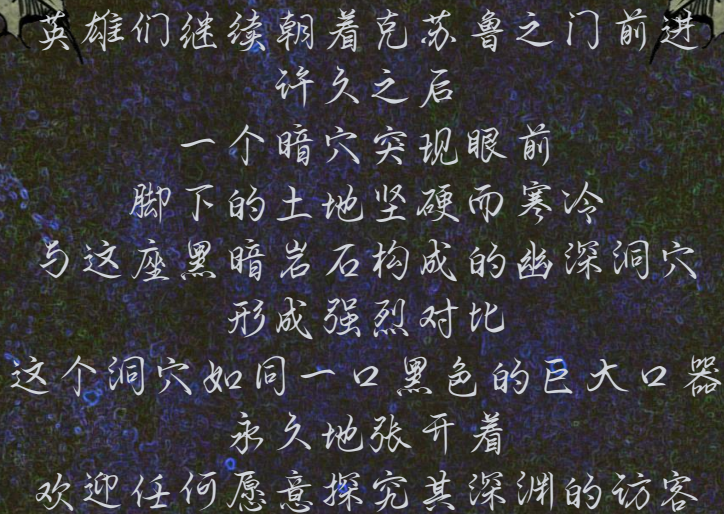 英雄们继续朝着克苏鲁之门前进
许久之后
一个暗穴突现眼前
脚下的土地坚硬而寒冷
与这座黑暗岩石构成的幽深洞穴
形成强烈对比
这个洞穴如同一口黑色的巨大口器
永久地张开着
欢迎任何愿意探究其深渊的访客